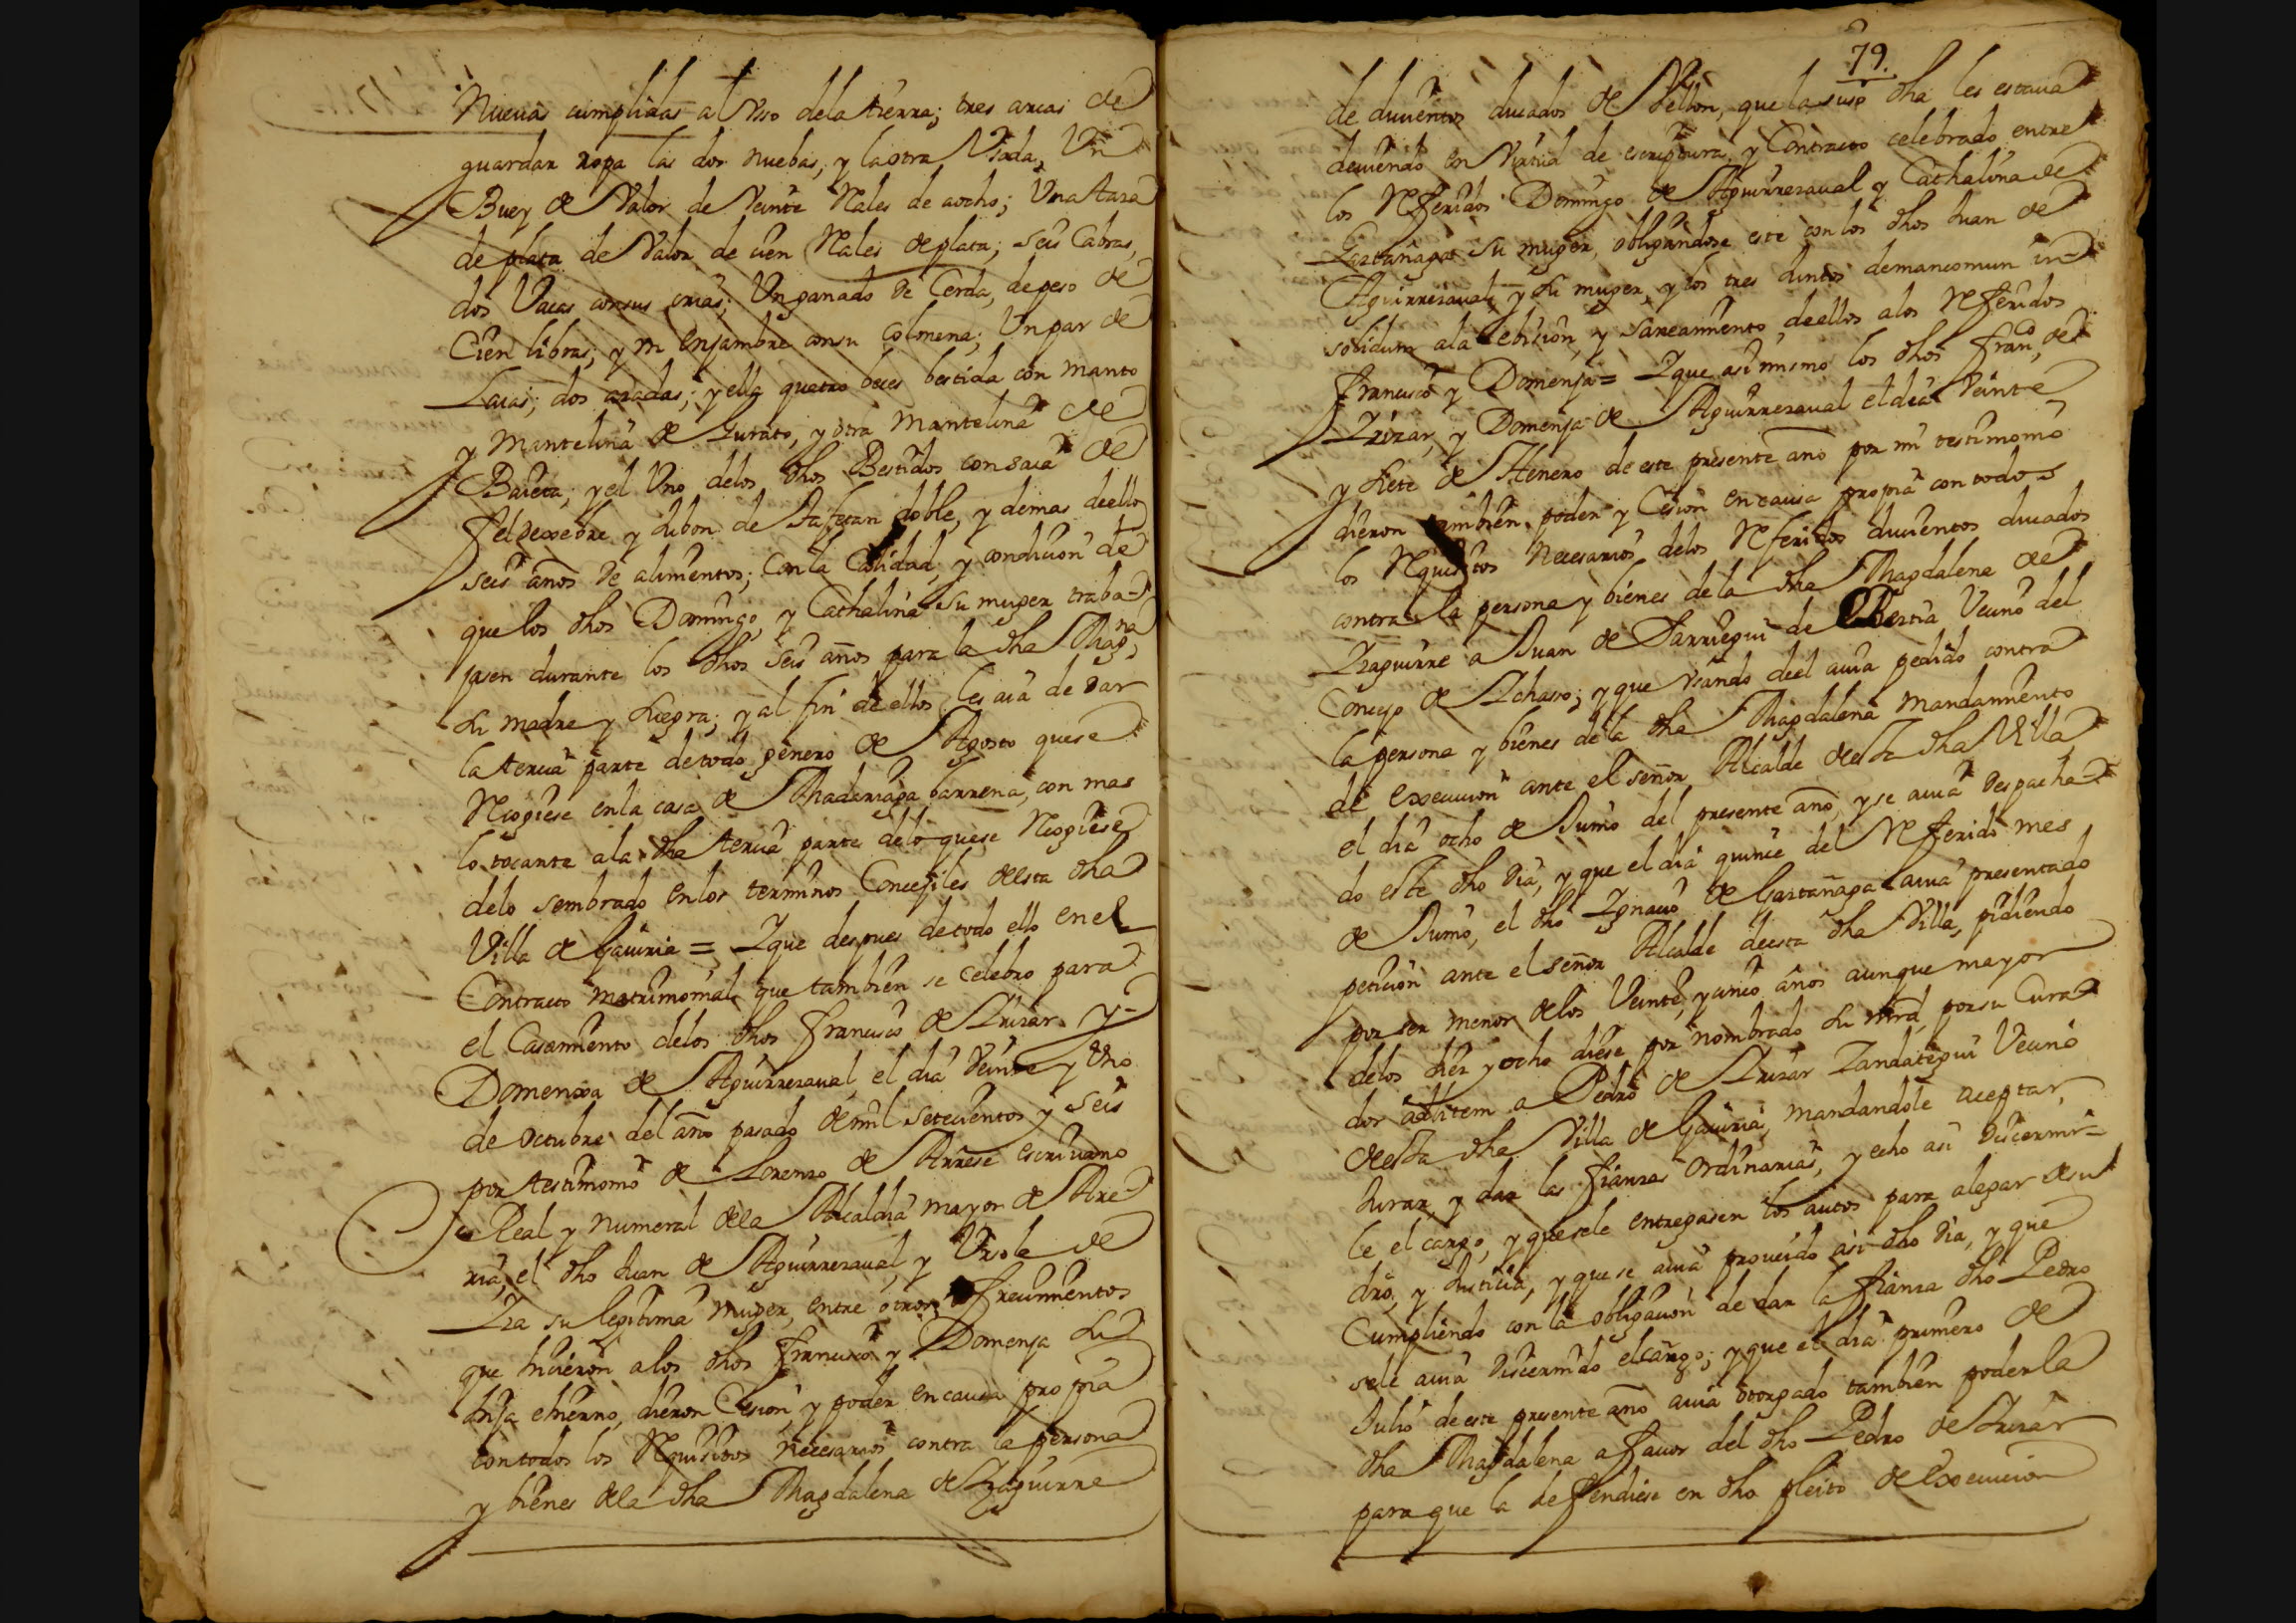 Nuevas cumplidas al Vso dela tierra; tres arcas de
guardar ropa las dos nuebas, y la otra Vsada, Vn
Buey de Valor de Veinte Rales de aocho; Vna taza
de plata de Valor de cien Rales de plata; seis Cabras,
dos Vacas consus crias; Vn ganado de Cerda, de peso de
Cien libras; y vn enjambre consu Colmena; Vn par de
Laias; dos azadas; y ella quatro beces bestida con manto
y Mantelina de Gurato, y otra Mantelina de
Baieta; y el Vno delos dhos Bestidos con saia de
felpexebre y Jubon de tafetan doble, y demas deello
seis años de alimentos; Con la Calidad, y condicion de
que los dhos Domingo, y Cathalina su muger traba-
jasen durante los dhos seis años para la dha Magna,
su madre y suegra; y al fin de ellos les aia de dar
la tercia parte detodo genero de Agosto que se
Recogiese enla casa de Madariaga barrena, con mas
lo tocante ala dha tercia parte delo que se Recogiese
delo sembrado enlos terminos Concejiles desta dha
Villa de Gaviria = Y que despues detodo ello en el
Contracto Matrimonial que tambien se celebro para
el Casamiento delos dhos Francisco de Yrizar y
Domenxa de Aguirrezaval el dia Veinte y Vno
de octubre del año pasado de mil setecientos y seis
por testimonio de Lorenzo de Arrese escriuano
Real y numeral dela Alcaldia mayor de Are-
ria, el dho Juan de Aguirrezaual, y Vrsola de
Yza su legitima muger, entre otros ofrecimientos
que hicieron alos dhos Francisco y Domenja su
hija ehierno, dieron Cesion y poder en causa propia
contodos los Requisitos necesarios contra la persona
y bienes dela dha Magdalena de Yzaguirre
79.
de ducientos ducados de Vellon, que la suso dha les estaua
deuiendo en Virtud de escriptura y Contracto celebrado entre
los Referidos Domingo de Aguirrezaual y Cathalina de
Gaztañaga su muger, obligandose este con los dhos Juan de
Aguirrezaual, y su muger, y los tres Juntos demancomun in
solidum ala ebicion, y saneamiento deellos alos Referidos
Francisco y Domenja = Y que asimismo los dhos Franco de
Yrizar, y Domenja de Aguirrezaual el dia Veinte
y siete de Henero de este presente año por mi testimonio
dieron tambien poder y Cesion en causa propia con todos
los Requisitos Necesarios delos Referidos ducientos ducados
contra la persona y bienes dela dha Magdalena de
Yzaguirre a Juan de Larriegui de Vertia Vecino del
Concejo de Ychaso; y que vsando deel auia pedido contra
la persona y bienes dela dha Magdalena mandamiento
de execucion ante el señor Alcalde desta dha Villa
el dia ocho de Junio del presente año, y se auia despacha-
do este dho dia, y que el dia quince del Referido mes
de Junio, el dho Ygnacio de Gaztañaga auia presentado
peticion ante el señor Alcalde deesta dha Villa, pidiendo
por ser menor delos Veinte, y cinco años aunque mayor
delos diez y ocho diese por nombrado su mrd, por su Cura-
dor adlitem a Pedro de Yrizar Zandategui Vecino
desta dha Villa de Gaviria, mandandole aceptar,
Jurar, y dar las fianzas ordinarias, y echo asi discernir-
le el cargo, y que se le entregasen los autos para alegar de su
dro, y Justicia, y que se auia proueido asi dho dia, y que
Cumpliendo con la obligacion de dar la fianza dho Pedro
sele auia discernido elcargo; y que el dia primero de
Julio de este presente año auia otorgado tambien poder la
dha Magdalena afauor del dho Pedro de Yrizar
para que la defendiese en dho pleito de execucion